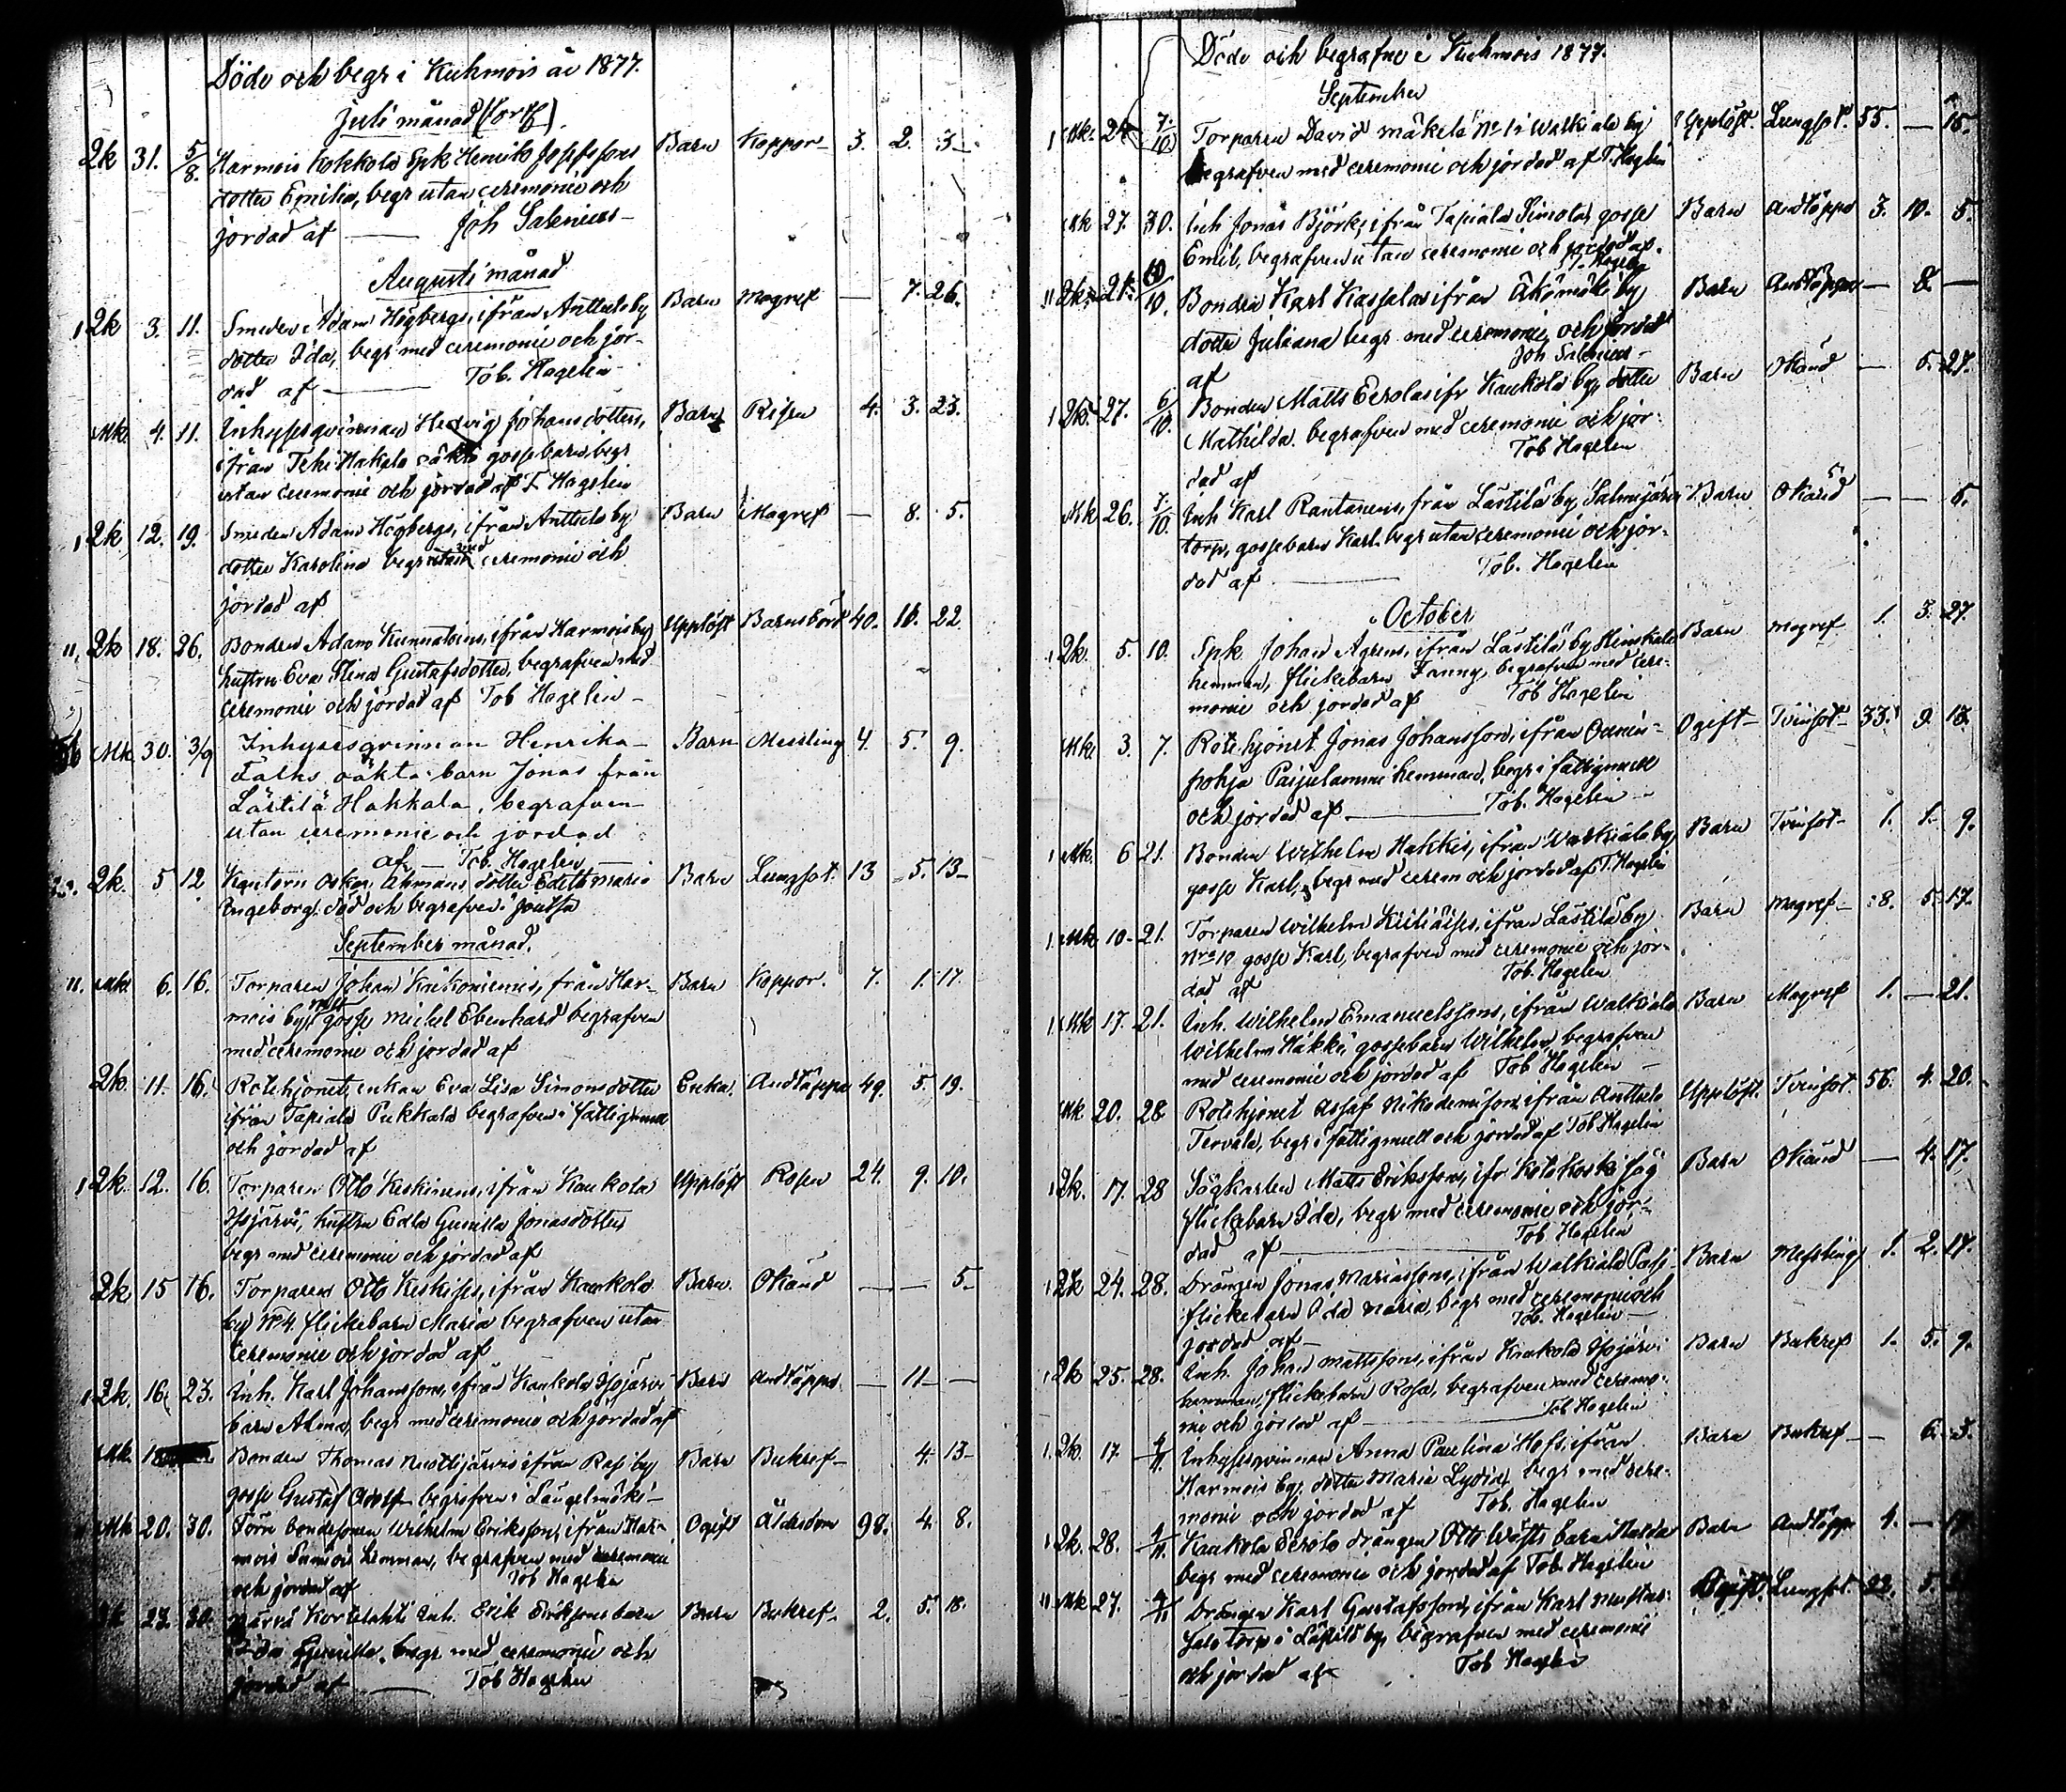 Döde och begr i Kuhmois år 1877.
Juli månad (forts).
Qk 31. 5/8. Harmois Kokkola Spk Henrik Josefssons Barn Koppor 3. 2. 3
dotter Emilia, begr utan ceremonie och
jordad af Joh Salenius
Augusti månad
1 Qk 3. 11. Smeden Adam Högbergs, ifrån Anttula by Barn Magref — 7. 26.
dotter Ida, begr med ceremonie och jor-
dad af Tob. Hagelin
Mk. 4. 11. Inhysesqvinnan Hedvig Johansdotters, Barn Risen 4. 3. 23.
ifrån Tehi Hakala oäkta gossebarn, begr
utan ceremonie och jordad af T Hagelin
1 Qk 12. 19. Smeden Adam Högbergs, ifrån Anttula by Barn Magref — 8. 5.
dotter Karolina begr utan med ceremonie och
jordad af
11. Qk 18. 26. Bonden Adam ifrån Harmois by Upplöst Barnsbörd 40. 10. 22.
hustru Eva Stina Gustafsdotter, begrafven med
ceremonie och jordad af Tob Hagelin
Mk 30. 3/9 Inhysesqvinnan Henrika Barn Messling 4. 5. 9.
Falks oäkta barn Jonas från
Lästilä Hakkala, begrafven
utan ceremonie och jordad
af — Tob. Hagelin
Qk. 5 12 Kantorn Oskar Åhmans dotter Edith Maria Barn Lungsot. 13 5. 13
Ingeborg. död och begrafven i Joutsa
September månad.
11. Mk. 6. 16. Torparen Johan från Har- Barn Koppor. 7. 1. 17.
mois by gosse Michel Eberhard begrafven
med ceremonie och jordad af
Qk. 11 16. Rotehjonet, enkan Eva Lisa Simonsdotter Enka. Andtäppa 49. 5. 19.
ifrån Tapiala Pukkala begrafven i fattigmull
och jordad af
1 Qk. 12. 16. Torparen Otto Keskinens, ifrån Kaukola Upplöst Rosen 24. 9. 10.
Isojärvi, hustru Edla Gunilla Jonasdotter
begr med ceremonie och jordad af
Qk 15 16. Torparen Otto Keskises, ifrån Kaukola Barn. Okänd — — 5.
by No 4. flickebarn Maria begrafven utan
ceremonie och jordad af
1 Qk. 16. 23. Inh. Karl Johanssons, ifrån Kaukola Isojärvi Barn Andtäppa. — 11 —
barn Alma, begr med ceremonie och jordad af
Mk. Bonden Thomas ifrån by Barn Bukref 4. 13
gosse Gustaf Adolf begrafven i Längelmäki
Mk 20. 30. Förre bondesonen Wilhelm Eriksson, ifrån Har- Ogift Ålderdom 98. 4. 8.
mois hemman, begrafven med ceremonie
och jordad af Tob Hagelin
27. 30. Kortelahti Inh. Erik Erikssons barn Barn Bukref. 2. 5. 18.
Ida Gunilla, begr med ceremonie och
jordad af Tob Hagelin
Döde och begrafne i Kuhmois 1877.
September
1 Mk. 7/10 Torparen David Mäkelä No 1 i Walkiala by Upplöst. Lungsot. 55. — 15.
begrafven med ceremonie och jordad af T. Hagelin
Mk 27. 30. Inh Jonas Björks, ifrån Tapiala Simola, gosse Barn Andtäppa 3. 10. 5.
Emil, begrafven utan ceremonie och jordad af
T. Hagelin
11 Qk. 21. Bonden Karl Kassalas ifrån by Barn Andtäppa — 8. —
dotter Juliana begr med ceremonie och jordad
af Joh Salenius
1 Qk. 27. 6/10. Bonden Matts Eerolas ifr Kaukola by, dotter Barn Okänd — 5. 27.
Mathilda. begrafven med ceremonie och jor-
dad af Tob Hagelin
Mk 26. 7/10. Inh Karl Rantanens, från Lästilä by Salmijärvi Barn Okänd — — 5.
torp, gossebarn Karl. begr utan ceremonie och jor-
dad af Tob. Hagelin
October
1 Qk. 5. 10. Spk Johan Agrens, ifrån Lästilä by Barn Magref 1. 3. 27.
hemman, flickebarn Fanny, begrafven med cere-
monie och jordad af Tob Hagelin
Mk. 3. 7. Rotehjonet Jonas Johansson, ifrån Ogift Tvinsot 33. 9. 13.
pohja Paijulammi hemman, begr i fattigmull
och jordad af Tob. Hagelin
1 Mk. 6 21. Bonden Wilhelm Hakkis, ifrån Walkiala by Barn Tvinsot 1. 1. 9.
gosse Karl, begr med cerem och jordad af T. Hagelin
1. Mk. 10 21. Torparen Wilhelm ifrån Lästilä by Barn Magref 8. 5. 17.
Nro 10 gosse Karl, begrafven med ceremonie och jor-
dad af Tob. Hagelin
1. Mk 17. 21. Inh. Wilhelm Emanuelssons, ifrån Walkiala Barn Magref 1. — 21.
Wilhelm Hakki, gossebarn Wilhelm, begrafven
med ceremonie och jordad af Tob Hagelin
Mk 20. 28 Rotehjonet Assaf Nikodemisson ifrån Anttula Upplöst. Tvinsot. 56. 4. 20.
Tervala, begr i fattigmull och jordad af Tob Hagelin
1 Qk. 17. 28 Sågkarlen Matts Erikssons, ifr Kotakoski såg Barn Okänd — 4. 17.
flickebarn Ida, begr med ceremonie och jor-
dad af Tob Hagelin
1 Qk 24. 28. Drängen Jonas Mariassons, ifrån Walkiala Passi Barn Messling 1. 2. 14.
flickebarn Ida Maria, begr med ceremonie och
jordad af Tob. Hagelin
1 Qk 25. 28. Inh. Johan Mattssons, ifrån Kaukola Isojärvi Barn Bukref 1. 5. 9.
hemman, flickebarn Rosa, begrafven med ceremo-
nie och jordad af Tob Hagelin
1. Qk. 17. 4/11. Inhysesqvinnan Anna Paulina Hofs, ifrån Barn Bukref — 6. 3.
Harmois by, dotter Maria Lydia, begr med cere-
monie och jordad af Tob. Hagelin
1 Qk. 28. 4/11. Kaukola Eerola drängen Otto barn Hulda Barn Andtäppa 1. —
begr med ceremonie och jordad af Tob. Hagelin
11 Mk 27. 4/11 Drängen Karl Gustafsson, ifrån Karl Ogift. Lungsot. 22. 5.
torp i Lästilä by, begrafven med ceremonie
och jordad af Tob Hagelin